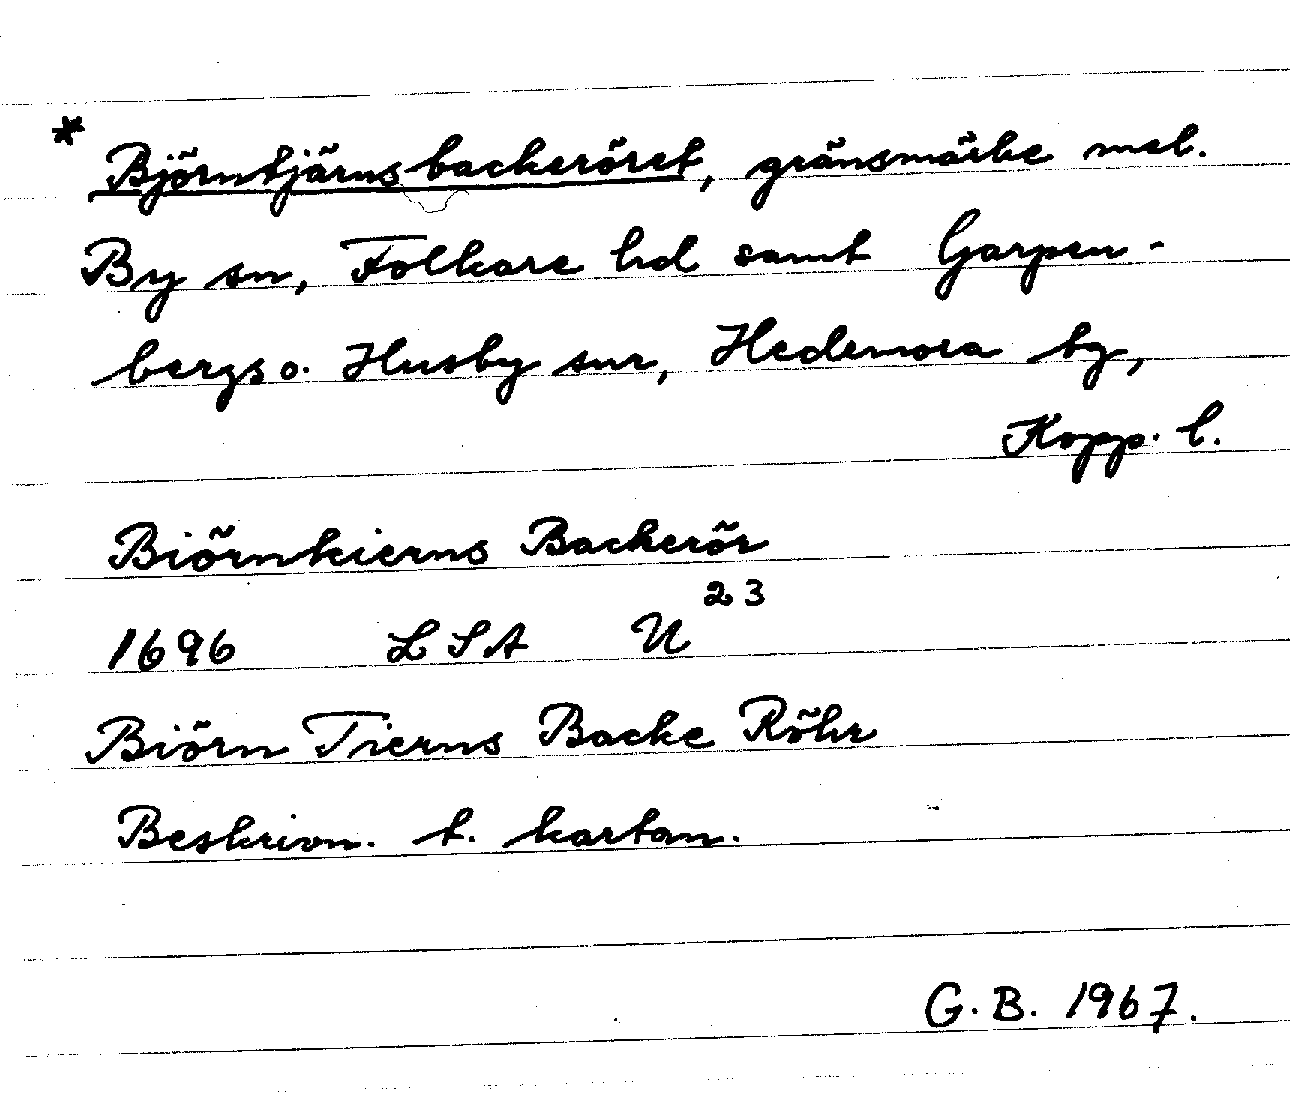 * Björntjärnsbackeröret, gränsmärke mel.
By sn, Folkare hd samt Garpen-
bergs o. Husby snr, Hedemora bg,
Kopp. l.
Biörnkierns Backerör
1696 LSA U 23
Biörn Tierns Backe Röhr
Beskrivn. t. kartan.
G.B. 1967.